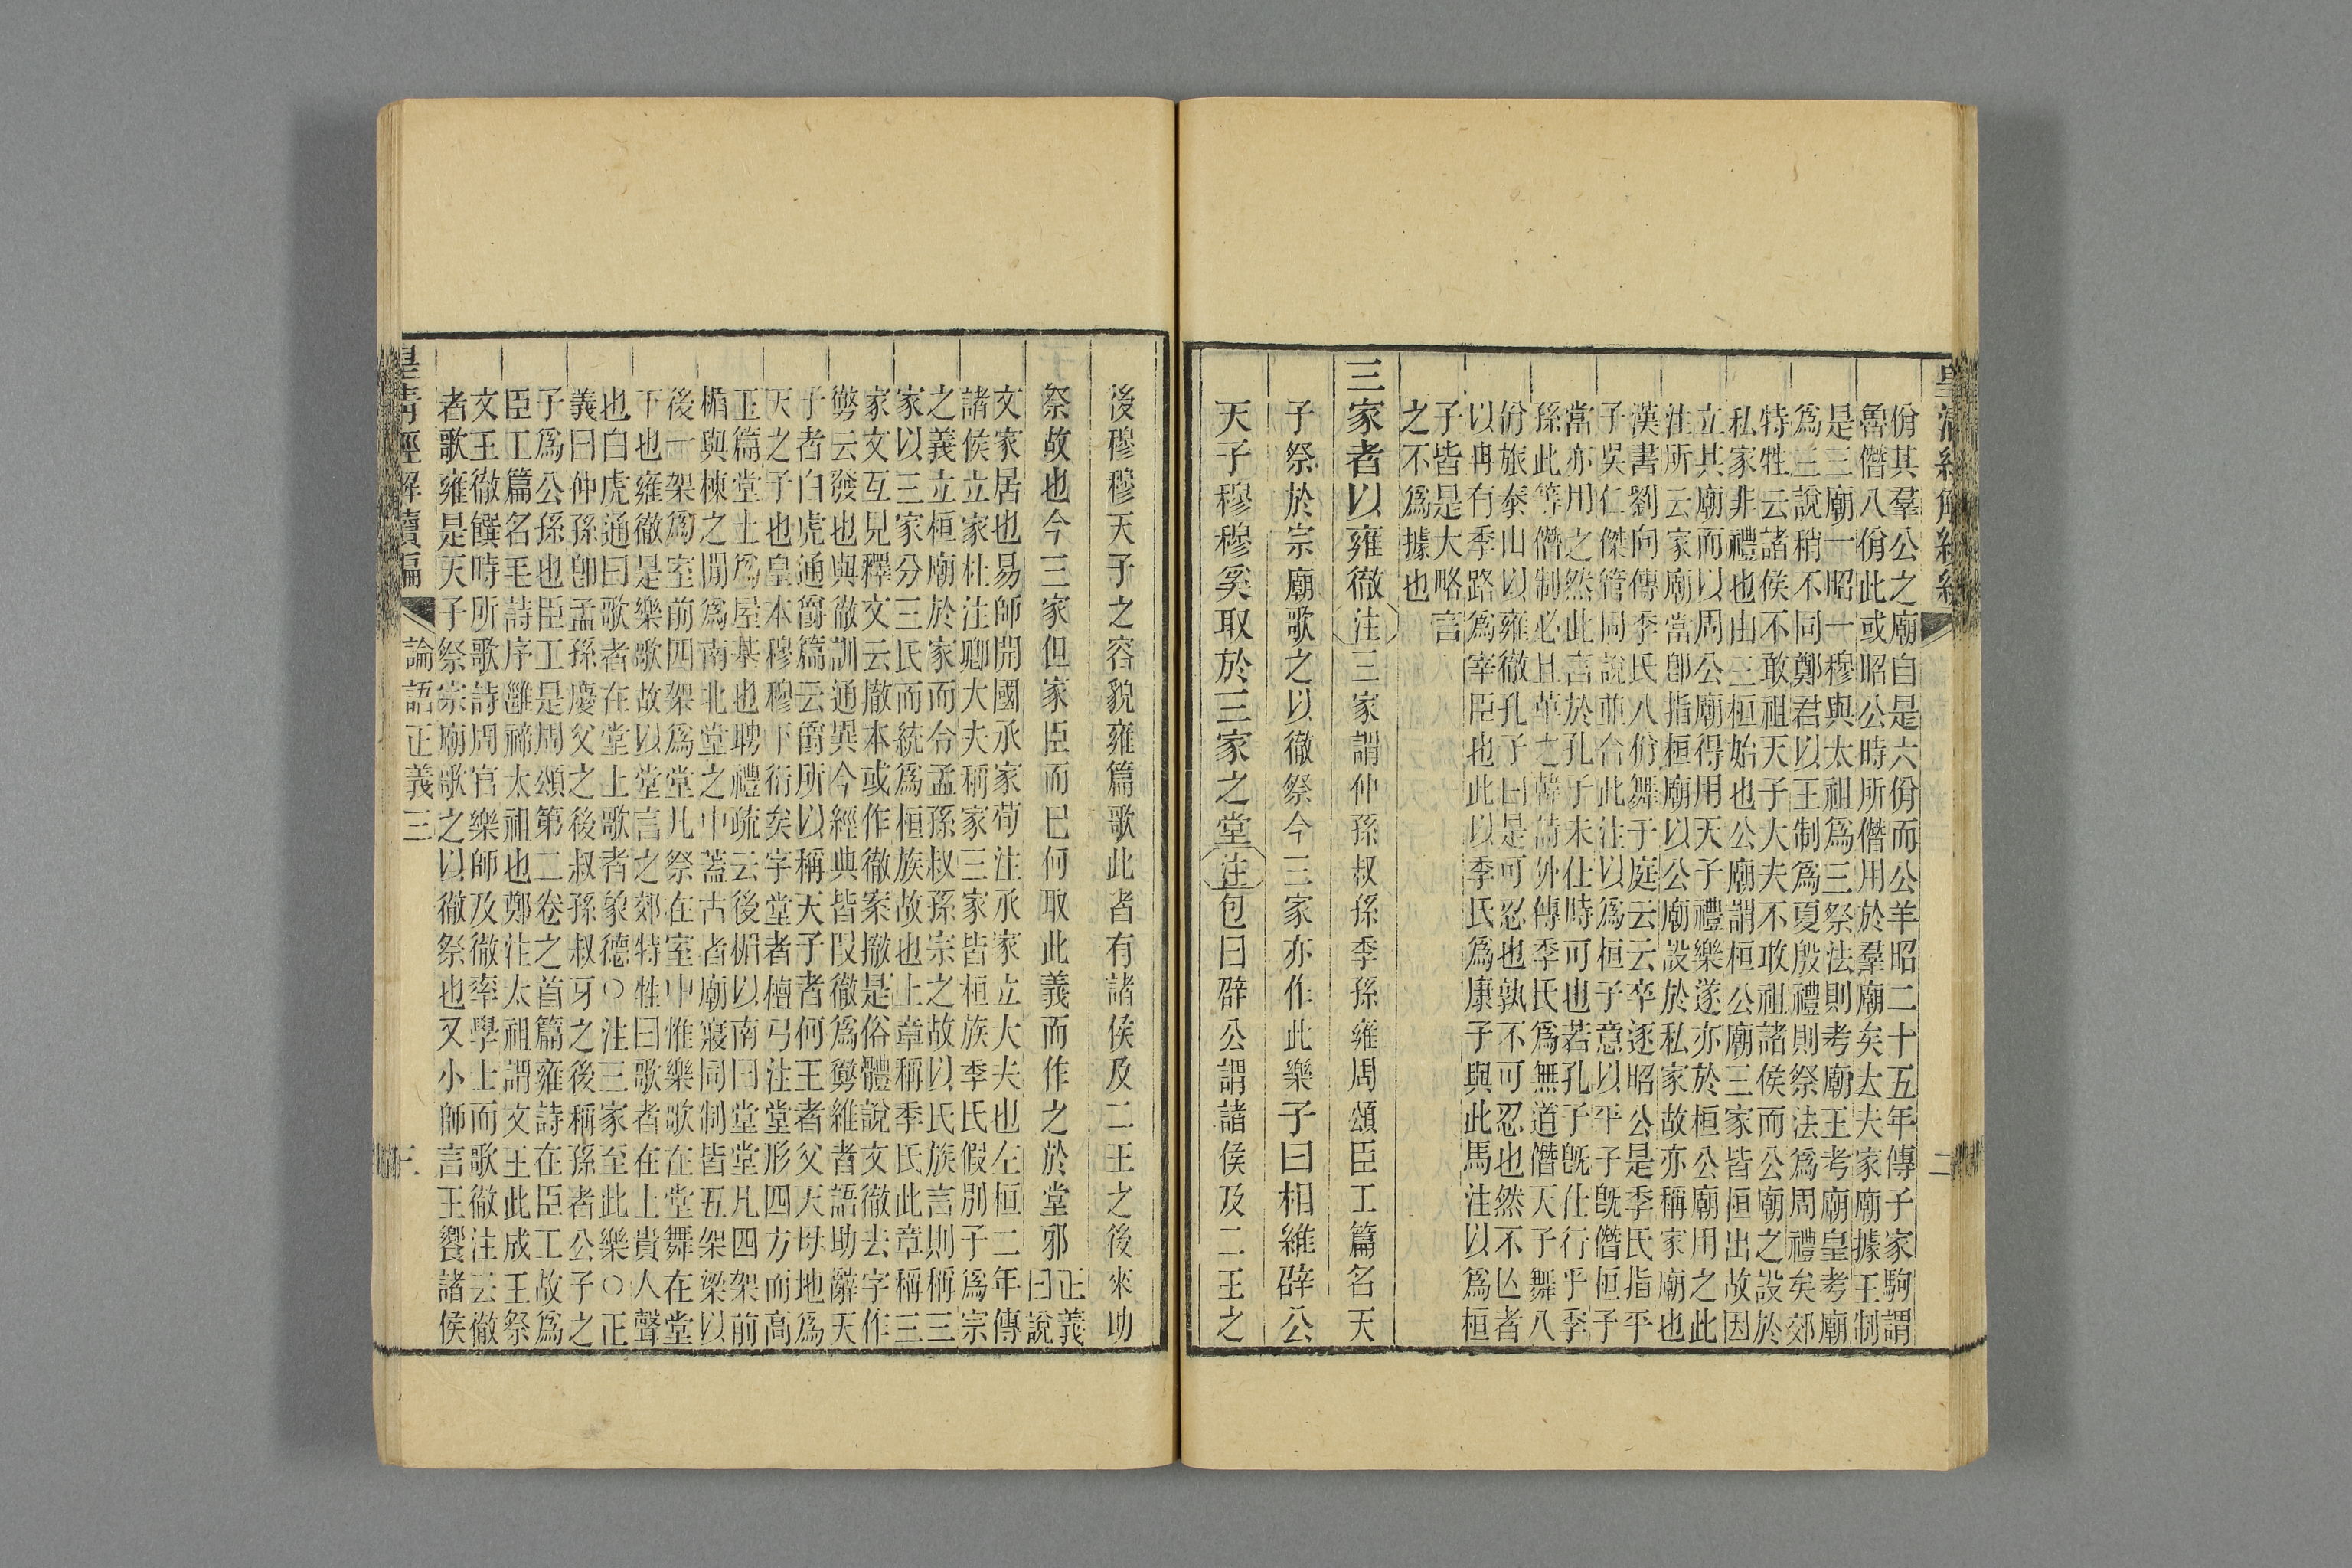 佾其羣公之廟自是六佾而公羊昭二十五年傳子家駒謂
魯僭八佾此或昭公時所僭用於羣廟矣大夫家廟據王制
是三廟一昭一穆與太祖爲三祭法則考廟王考廟皇考廟
爲三說稍不同鄭君以王制爲夏殷禮則祭法爲周禮矣郊
特牲云諸侯不敢祖天子大夫不敢祖諸侯而公廟之設於
私家非禮也由三桓始也公廟謂桓公廟三家皆桓出故因
立其廟而以周公廟得用天子禮樂遂亦於桓公廟用之此
注所云家廟當卽指桓廟以公廟設於私家故亦稱家廟也
漢書劉向傳季氏八佾舞于庭云云卒逐昭公是季氏指平
子吳仁傑管同說並合此注以爲桓子意以平子旣僭桓子
當亦用之然此言於孔子未仕時可也若孔子旣仕行乎季
孫此等僭制必且革之韓詩外傳季氏爲無道僭天子舞八
佾旅泰山以雍徹孔子曰是可忍也孰不可忍也然不亾者
以冉有季路爲宰臣也此以季氏爲康子與此馬注以爲桓
子皆是大略言
之不爲據也
三家者以雍徹注三家謂仲孫叔孫季孫雍周頌臣工篇名天
子祭於宗廟歌之以徹祭今三家亦作此樂子曰相維辟公
天子穆穆奚取於三家之堂注包曰辟公謂諸侯及二王之
後穆穆天子之容貌雍篇歌此者有諸侯及二王之後來助
祭故也今三家但家臣而已何取此義而作之於堂邪正義
曰說
文家居也易師開國承家荀注承家立大夫也左桓二年傳
諸侯立家杜注卿大夫稱家三家皆桓族季氏假別子爲宗
之義立桓廟於家而令孟孫叔孫宗之故以氏族言則稱三
家以三家分三氏而統爲桓族故也上章稱季氏此章稱三
家文互見釋文云撤本或作徹案撤是俗體說文徹去字作
勶云發也與徹訓通異今經典皆叚徹爲勶維者語助辭天
子者白虎通爵篇云爵所以稱天子者何王者父天母地爲
天之子也皇本穆穆下衍矣字堂者檀弓注堂形四方而高
正篇堂土爲屋基也聘禮疏云後楣以南曰堂堂凡四架前
楣與棟之閒爲南北堂之中蓋古者廟寢同制皆五架梁以
後一架爲室前四架爲堂凡祭在室中惟樂歌在堂舞在堂
下也雍徹是樂歌故以堂言之郊特牲曰歌者在上貴人聲
也白虎通曰歌者在堂上歌者象德○注三家至此樂○正
義曰仲孫卽孟孫慶父之後叔孫叔牙之後稱孫者公子之
子爲公孫也臣工是周頌第二卷之首篇雍詩在臣工故爲
臣工篇名毛詩序雝禘太祖也鄭注太祖謂文王此成王祭
文王徹饌時所歌詩周官樂師及徹率學士而歌徹注云徹
者歌雍是天子祭宗廟歌之以徹祭也又小師言王饗諸侯
皇清經解續編 論語正義三